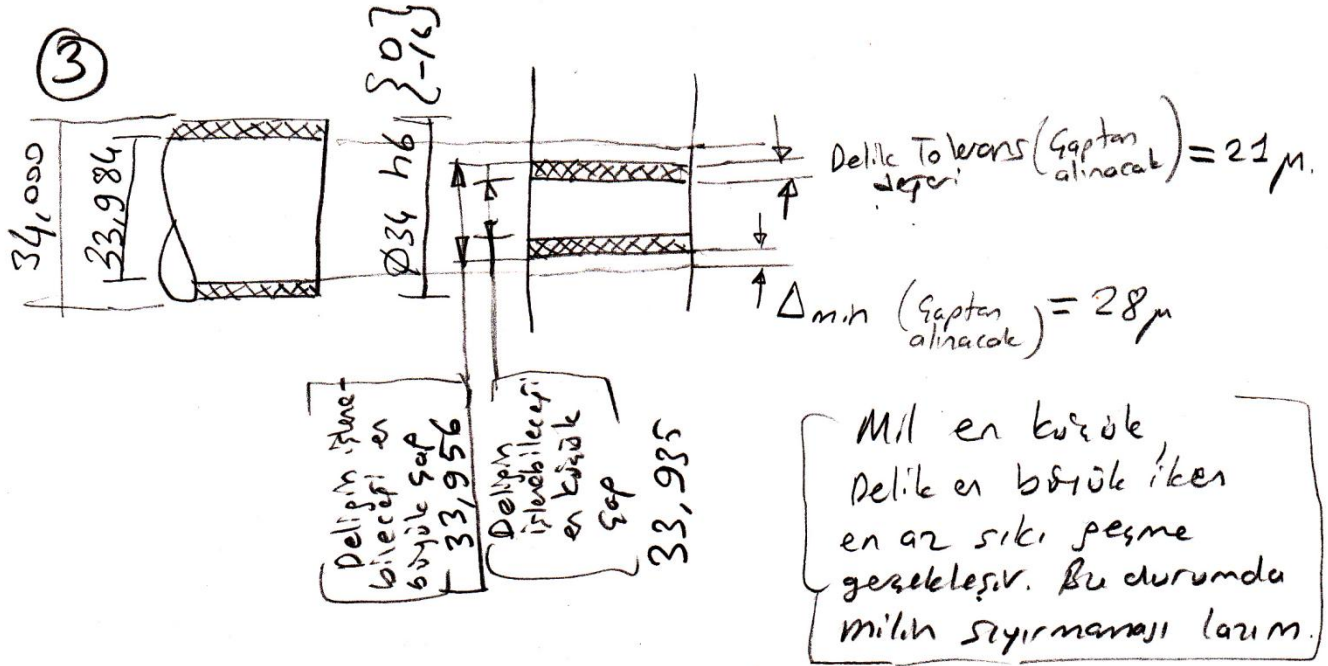 ③
34,000
33,984
Ø34 h6 {0 -16}
Delik Tolerans (Çaptan alınacak) = 21 µ.
değeri
Δmin (Çaptan alınacak) = 28 µ
Deliğin işlene-
bileceği en
büyük çap
33,956
Deliğin
işlenebileceği
en küçük
çap
33,935
Mil en küçük,
Delik en büyük iken
en az sıkı geçme
gerçekleşir. Bu durumda
milin sıyırmaması lazım.